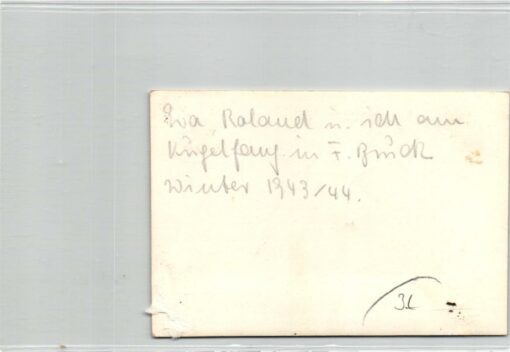 Eva, Roland u. ich am
Kugelfang in F. Bruck
Winter 1943/44.
31